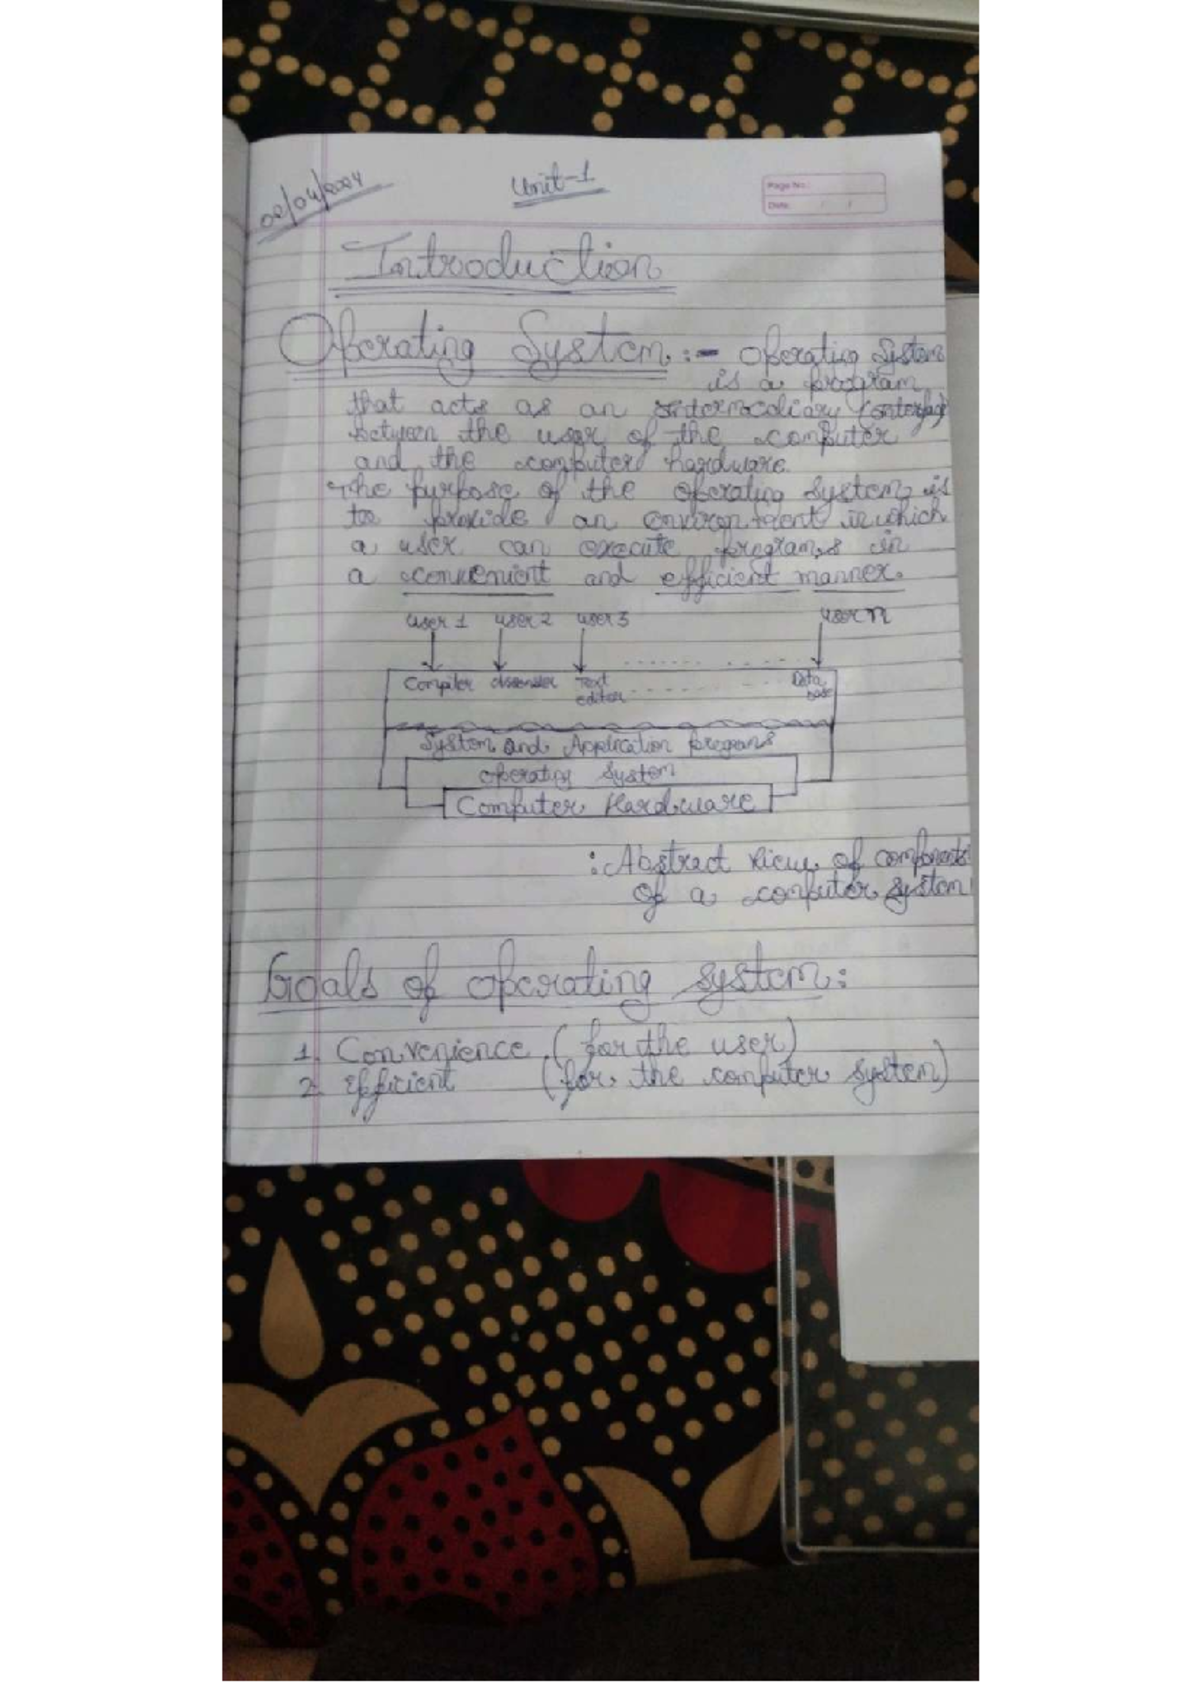 02/04/2024
Unit-1
Page No.:
Date: / /
Introduction
Operating System :- Operating System
is a program
that acts as an intermediary (interface)
between the user of the computer
and the computer hardware.
The purpose of the operating system is
to provide an environment in which
a user can execute programs in
a convenient and efficient manner.
user 1 user 2 user 3 user n
Compiler Text Data
editor base
System and Application programs
operating System
Computer Hardware
: Abstract view of components
of a computer system
Goals of operating system :
1. Convenience (for the user)
2. Efficient (for the computer system)